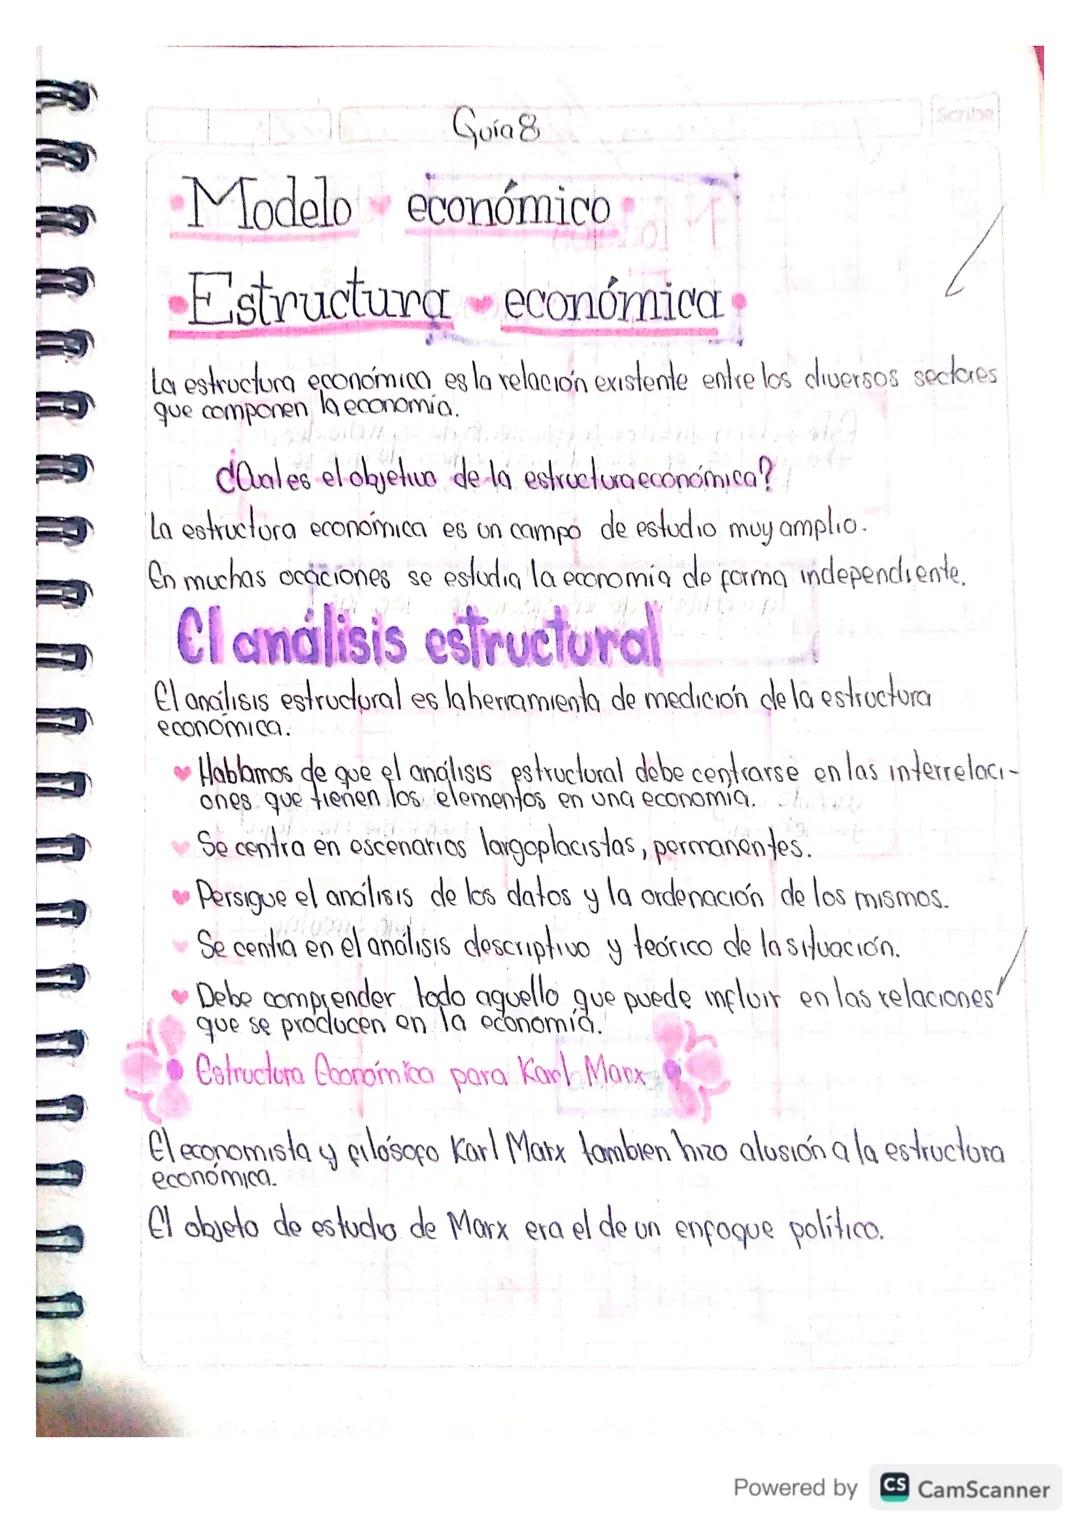 Scribe
Guía 8
Modelo económico
Estructura económica
La estructura económica es la relación existente entre los diversos sectores
que componen la economía.
¿Cual es el objetivo de la estructura económica?
La estructura económica es un campo de estudio muy amplio.
En muchas ocaciones se estudia la economía de forma independiente.
El análisis estructural
El análisis estructural es la herramienta de medición de la estructura
económica.
Hablamos de que el análisis estructural debe centrarse en las interrelaci-
ones que tienen los elementos en una economía.
Se centra en escenarios largoplacistas, permanentes.
Persigue el análisis de los datos y la ordenación de los mismos.
Se centra en el análisis descriptivo y teórico de la situación.
Debe comprender todo aquello que puede influir en las relaciones
que se producen en la economía.
Estructura Económica para Karl Marx
El economista y filósofo Karl Marx tambien hizo alusión a la estructura
económica.
El objeto de estudio de Marx era el de un enfoque político.
Powered by CS CamScanner